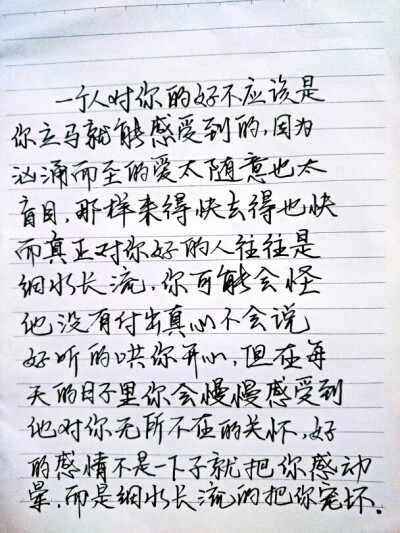 一个人对你的好不应该是
你立马就能感受到的,因为
汹涌而至的爱太随意也太
盲目,那样来得快去得也快
而真正对你好的人往往是
细水长流,你可能会怪
他没有付出真心不会说
好听的哄你开心,但在每
天的日子里你会慢慢感受到
他对你无所不在的关怀,好
的感情不是一下子就把你感动
晕,而是细水长流的把你宠坏.